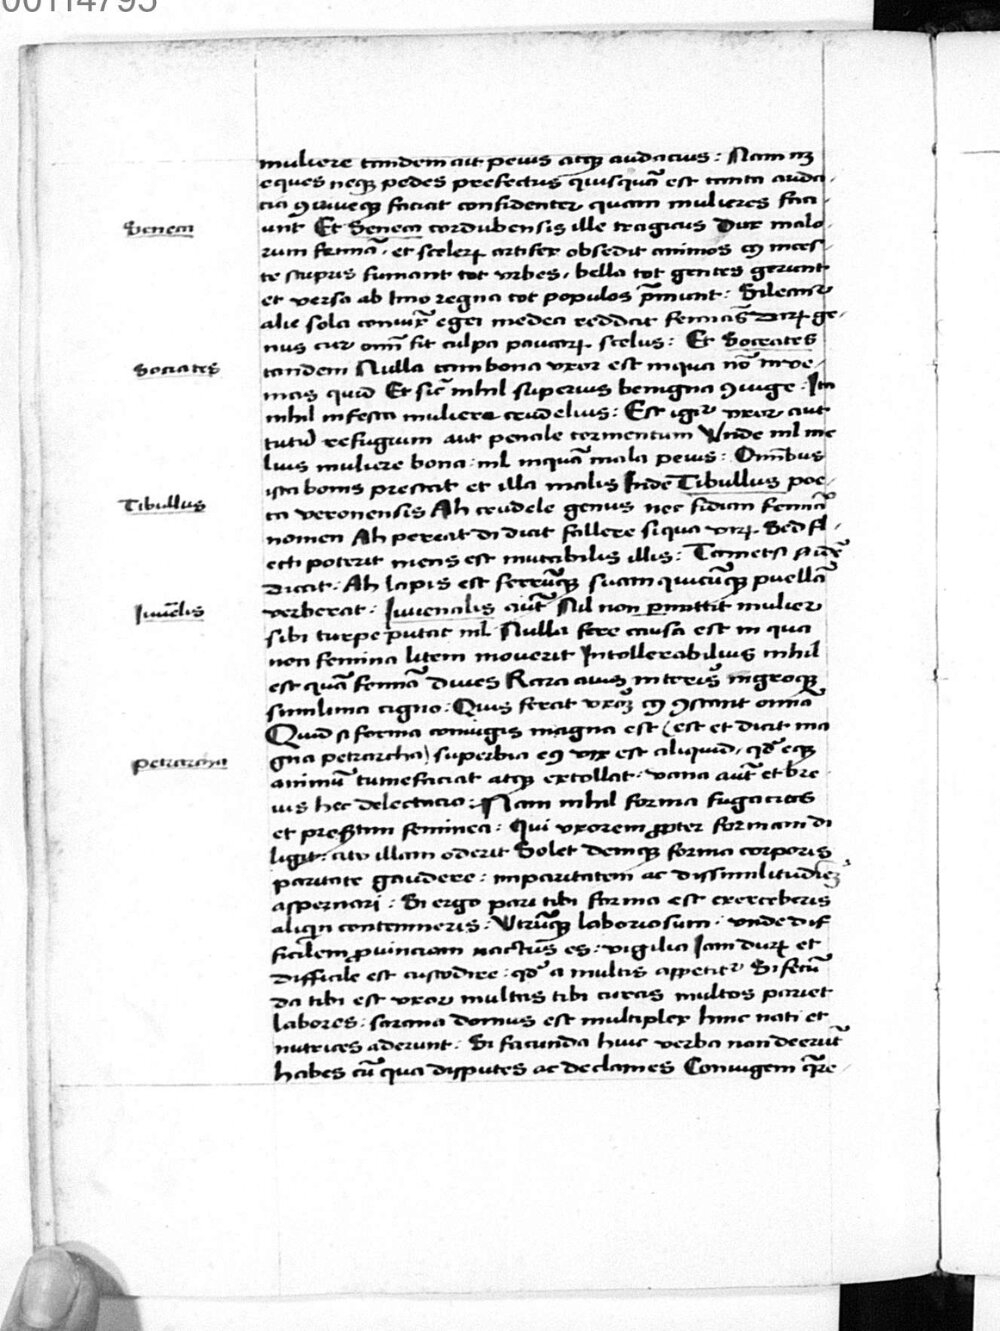 00114795
muliere tandem ait peius atqꝫ audacius: Nam nꝫ
eques neqꝫ pedes prefectus quisquā est tanta auda-
cia ꝯ uiueqꝫ faciat confidenter quam mulieres faci-
Seneca
unt Et Seneca cordubensis ille tragicus Dux malo
rum femīa. et scelerꝝ artifex obsedit animos cꝫ inces-
te stupris fumant tot vrbes. bella tot gentes gerunt
et versa ab Imo regna tot populos p̄munt: Sileant
alie sola coniūx egei medea reddat feminas dirꝝ ge-
nus cur om̄ fit culpa paucarꝝ scelus: Et Socrates
Socrates
tandem Nulla tam bona vxor est in qua nō inue-
nias quid Et sic nihil superius benigna ꝯiuge. Ita
nihil infesta muliere crudelius: Est igit̄ vxor aut
tutū refugium aut penale tormentum Vnde nil me
lius muliere bona: nil inquā mala peius: Om̄ibus
ista bonis prestat et illa malis Inde Tibullus poe-
Tibullus
ta veronensis Ah crudele genus nec fidum femīa
nomen Ah pereat didicit fallere siqua virꝝ. Sed fl-
ecti poterit mens est mutabilis illis: Tametsi
dicat: Ah lapis est ferrūqꝫ suam quicūqꝫ puellā
Iuuēalis
verberat: Iuuenalis aūt Nil non ꝑmittit mulier
sibi turpe putat nil Nulla fere causa est in qua
non femina litem mouerit Intollerabilius nihil
est quā femīa diues Rara auis in terris nigroqꝫ
simillima cigno: Quis ferat vxorē cꝫ ꝯstant omīa
Quid si forma coniugis magna est (est et dicit ma
Petrarcha
gna petrarcha) superbia eꝯ vix est aliquid. qđ eqꝫ
animū tumefaciat atqꝫ extollat: vana aūt et bre
uis hec delectacio: Nam nihil forma fugacius
et presertim feminea: Qui vxorem ꝓpter formam di
ligit: cito illam oderit Solet deniqꝫ forma corporis
paritate gaudere: imparitatem ac dissimilitudinē
aspernari: Si ergo pari tibi forma est exerceberis
aliq̄n contemneris: Vtrūqꝫ laboriosum: vnde dif
ficilem ꝓuinciam nactus es: vigilia Iam durꝝ et
difficile est custodire: qđ a multis appetit̄ Si fecū
da tibi est vxor multas tibi curas multos pariet
labores: sarcina domus est multiplex hinc nati et
nutrices aderunt: Si facunda huic verba non deerūt
habes cū qua disputes ac declames Coniugem q̄re-